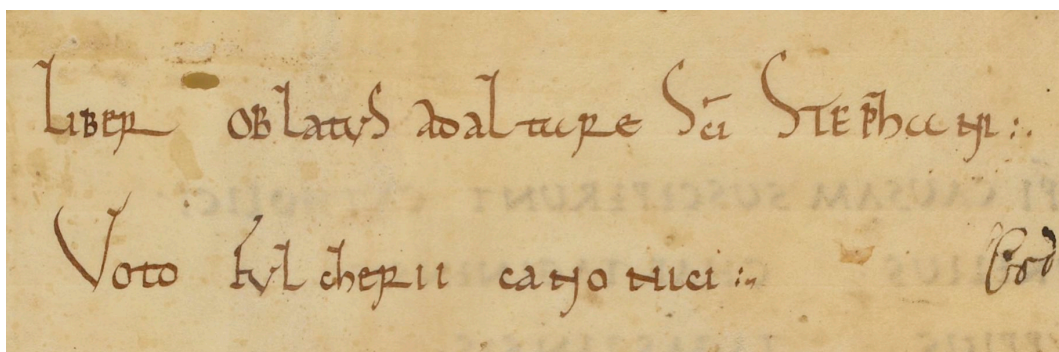 LIBER OBLATUS AD ALTARE Sci STEPHANI :.
VOTO FULCHERII CANONICI :~